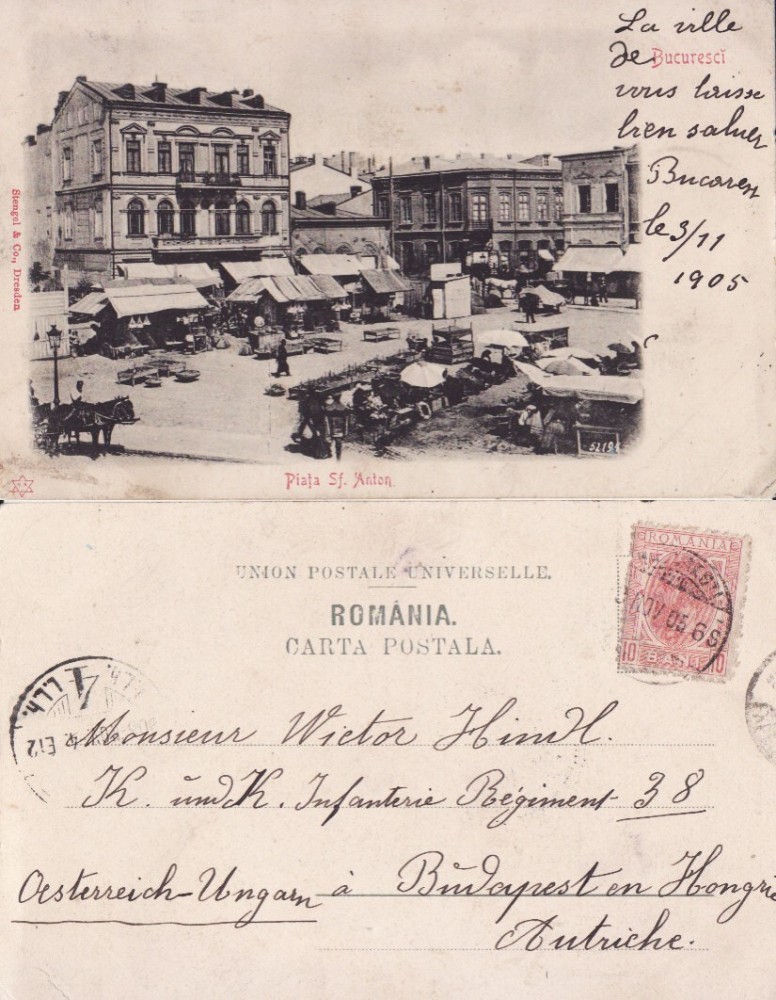 La ville
de Bucurescĭ
vous laisse
bien saluer
Bucarest
le 3/11
1905
Stengel & Co., Dresden
52191
Piața Sf. Anton
UNION POSTALE UNIVERSELLE.
ROMÂNIA.
CARTA POSTALA.
ROMANIA
NOV 05
10 BANI 10
Monsieur Wictor Hindl.
K. und K. Infanterie Régiment 38
Oesterreich-Ungarn à Budapest en Hongrie
Autriche.